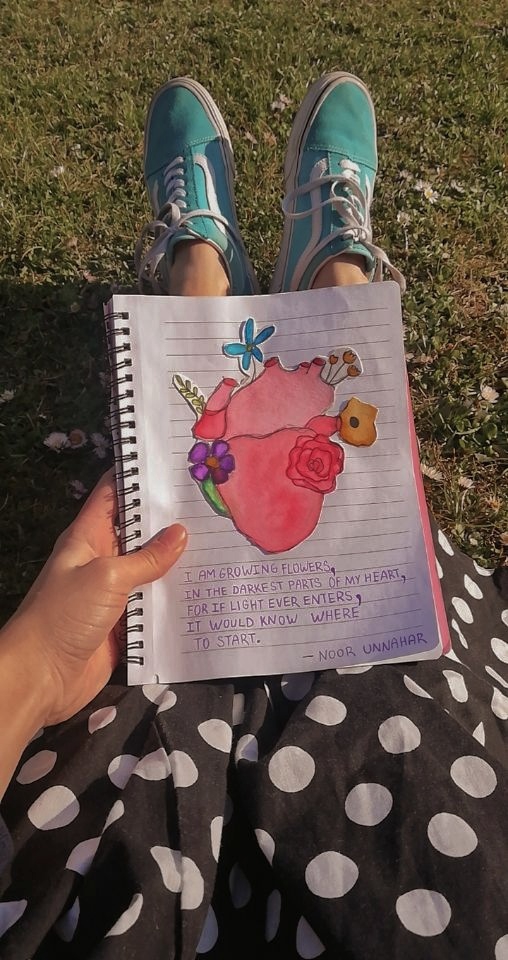 I AM GROWING FLOWERS,
IN THE DARKEST PARTS OF MY HEART,
FOR IF LIGHT EVER ENTERS,
IT WOULD KNOW WHERE
TO START.
— NOOR UNNAHAR